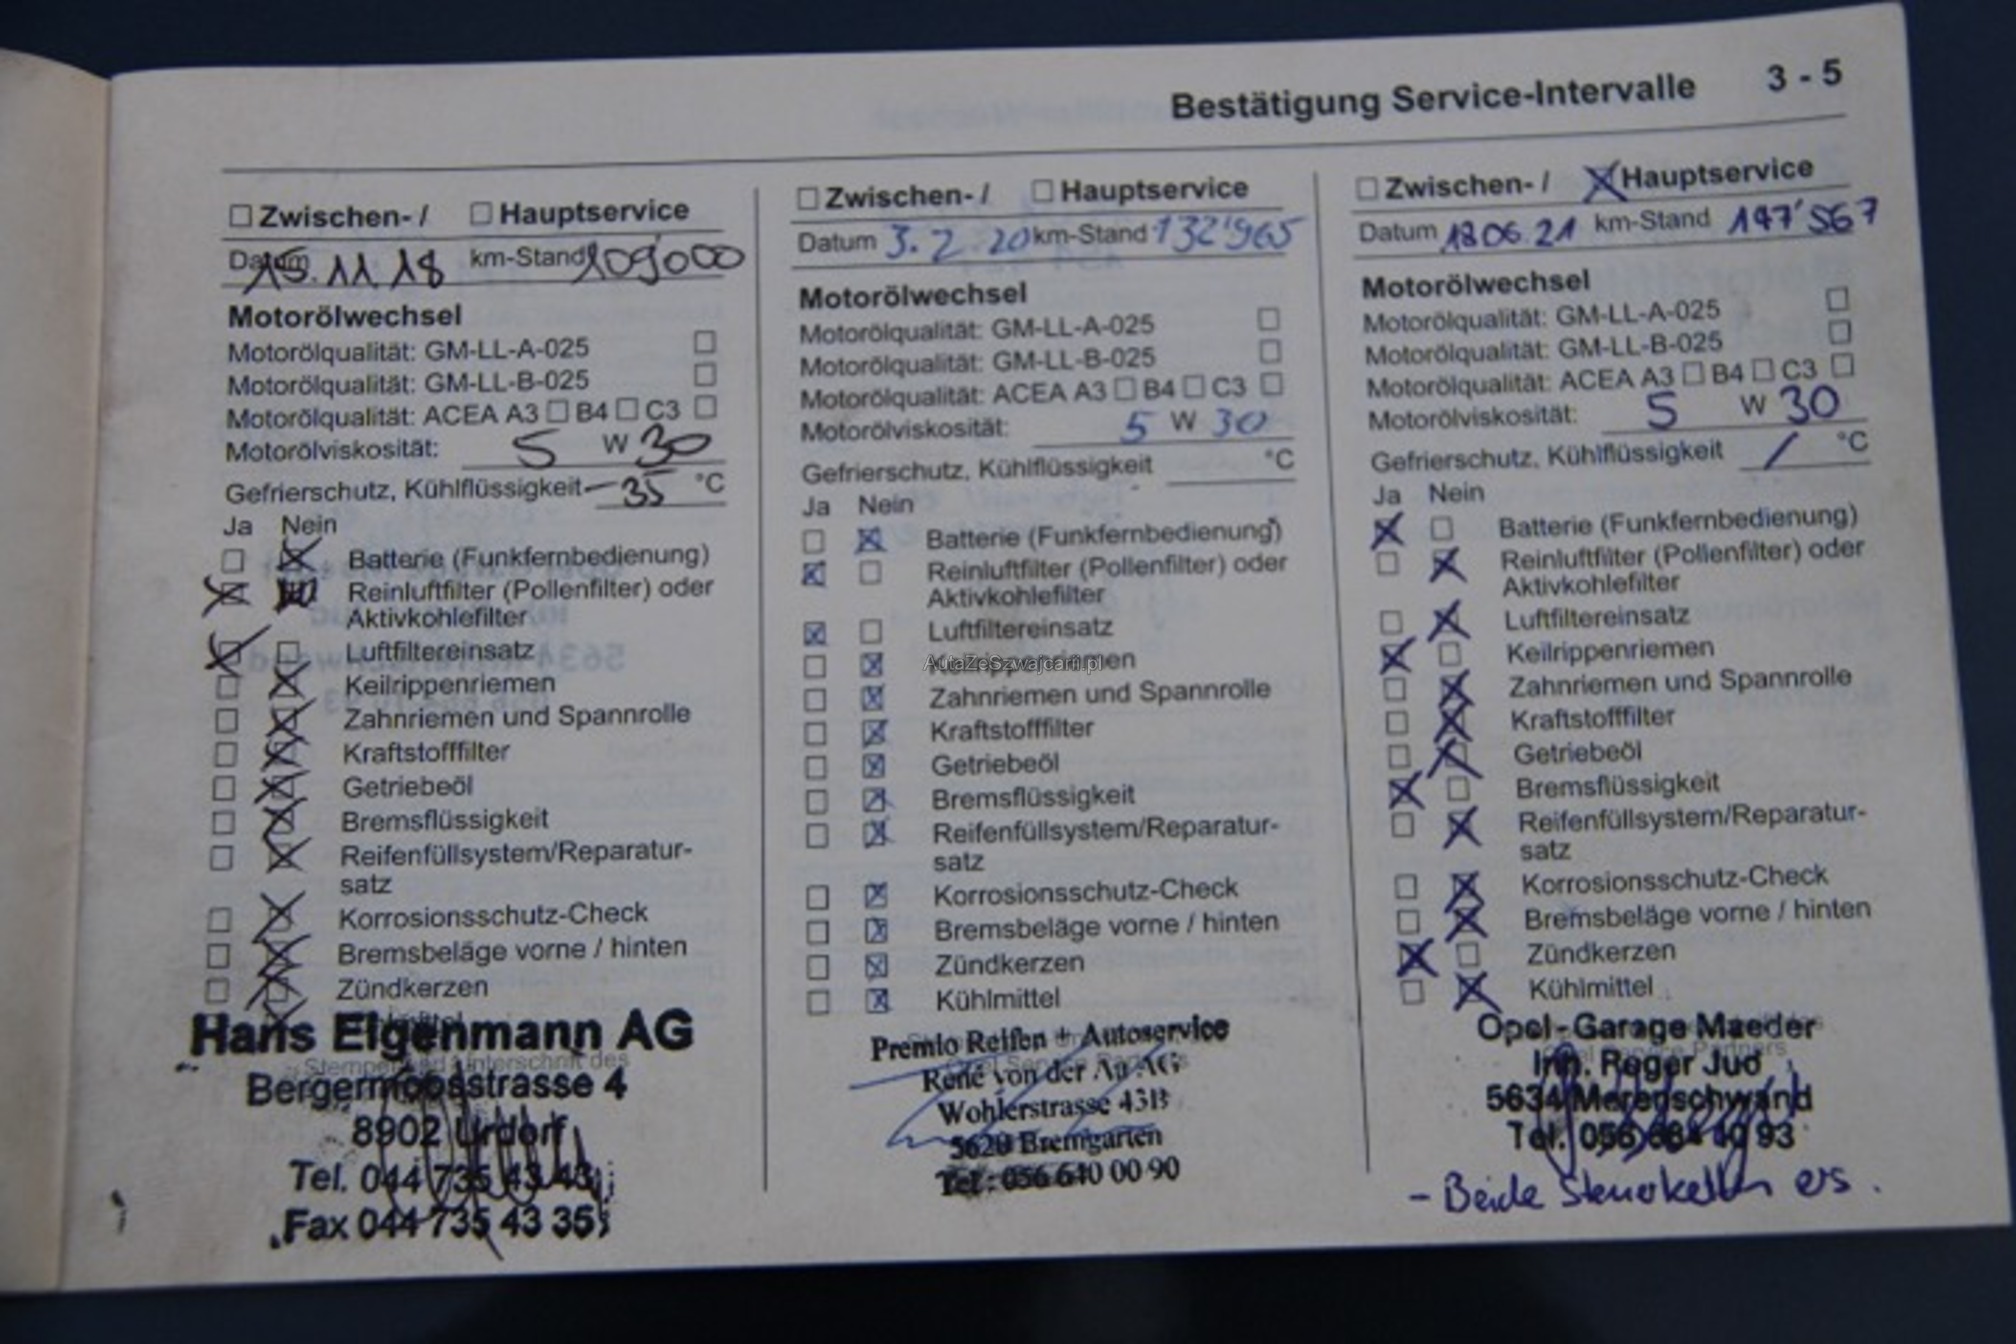 Bestätigung Service-Intervalle 3 - 5
☐ Zwischen- / ☐ Hauptservice
Datum 15.11.18 km-Stand 109'000
Motorölwechsel
Motorölqualität: GM-LL-A-025 ☐
Motorölqualität: GM-LL-B-025 ☐
Motorölqualität: ACEA A3 ☐ B4 ☐ C3 ☐
Motorölviskosität: 5 W 30
Gefrierschutz, Kühlflüssigkeit -35 °C
Ja Nein
☐ ☒ Batterie (Funkfernbedienung)
Reinluftfilter (Pollenfilter) oder
Aktivkohlefilter
☒ ☐ Luftfiltereinsatz
☐ ☒ Keilrippenriemen
☐ ☒ Zahnriemen und Spannrolle
☐ ☒ Kraftstofffilter
☐ ☒ Getriebeöl
☐ ☒ Bremsflüssigkeit
☐ ☒ Reifenfüllsystem/Reparatur-
satz
☐ ☒ Korrosionsschutz-Check
☐ ☒ Bremsbeläge vorne / hinten
☐ ☒ Zündkerzen
Hans Eigenmann AG
Stempel und Unterschrift des
Bergermoosstrasse 4
8902 Urdorf
Tel. 044 735 43 43
Fax 044 735 43 35
☐ Zwischen- / ☐ Hauptservice
Datum 3. 2. 20 km-Stand 132'965
Motorölwechsel
Motorölqualität: GM-LL-A-025 ☐
Motorölqualität: GM-LL-B-025 ☐
Motorölqualität: ACEA A3 ☐ B4 ☐ C3 ☐
Motorölviskosität: 5 W 30
Gefrierschutz, Kühlflüssigkeit °C
Ja Nein
☐ ☒ Batterie (Funkfernbedienung)
☒ ☐ Reinluftfilter (Pollenfilter) oder
Aktivkohlefilter
☒ ☐ Luftfiltereinsatz
☐ ☒ Keilrippenriemen
AutaZeSzwajcarii.pl
☐ ☒ Zahnriemen und Spannrolle
☐ ☒ Kraftstofffilter
☐ ☒ Getriebeöl
☐ ☒ Bremsflüssigkeit
☐ ☒ Reifenfüllsystem/Reparatur-
satz
☐ ☒ Korrosionsschutz-Check
☐ ☒ Bremsbeläge vorne / hinten
☐ ☒ Zündkerzen
☐ ☒ Kühlmittel
Premio Reifen + Autoservice
René von der Au AG
Wohlerstrasse 43B
5620 Bremgarten
Tel.: 056 640 00 90
☐ Zwischen- / ☒ Hauptservice
Datum 18.06.21 km-Stand 147'567
Motorölwechsel
Motorölqualität: GM-LL-A-025 ☐
Motorölqualität: GM-LL-B-025 ☐
Motorölqualität: ACEA A3 ☐ B4 ☐ C3 ☐
Motorölviskosität: 5 W 30
Gefrierschutz, Kühlflüssigkeit / °C
Ja Nein
☒ ☐ Batterie (Funkfernbedienung)
☐ ☒ Reinluftfilter (Pollenfilter) oder
Aktivkohlefilter
☐ ☒ Luftfiltereinsatz
☒ ☐ Keilrippenriemen
☐ ☒ Zahnriemen und Spannrolle
☐ ☒ Kraftstofffilter
☐ ☒ Getriebeöl
☒ ☐ Bremsflüssigkeit
☐ ☒ Reifenfüllsystem/Reparatur-
satz
☐ ☒ Korrosionsschutz-Check
☐ ☒ Bremsbeläge vorne / hinten
☒ ☐ Zündkerzen
☐ ☒ Kühlmittel
Opel-Garage Maeder
Inh. Roger Jud
5634 Merenschwand
Tel. 056 664 10 93
- Beide Steuerketten ers.